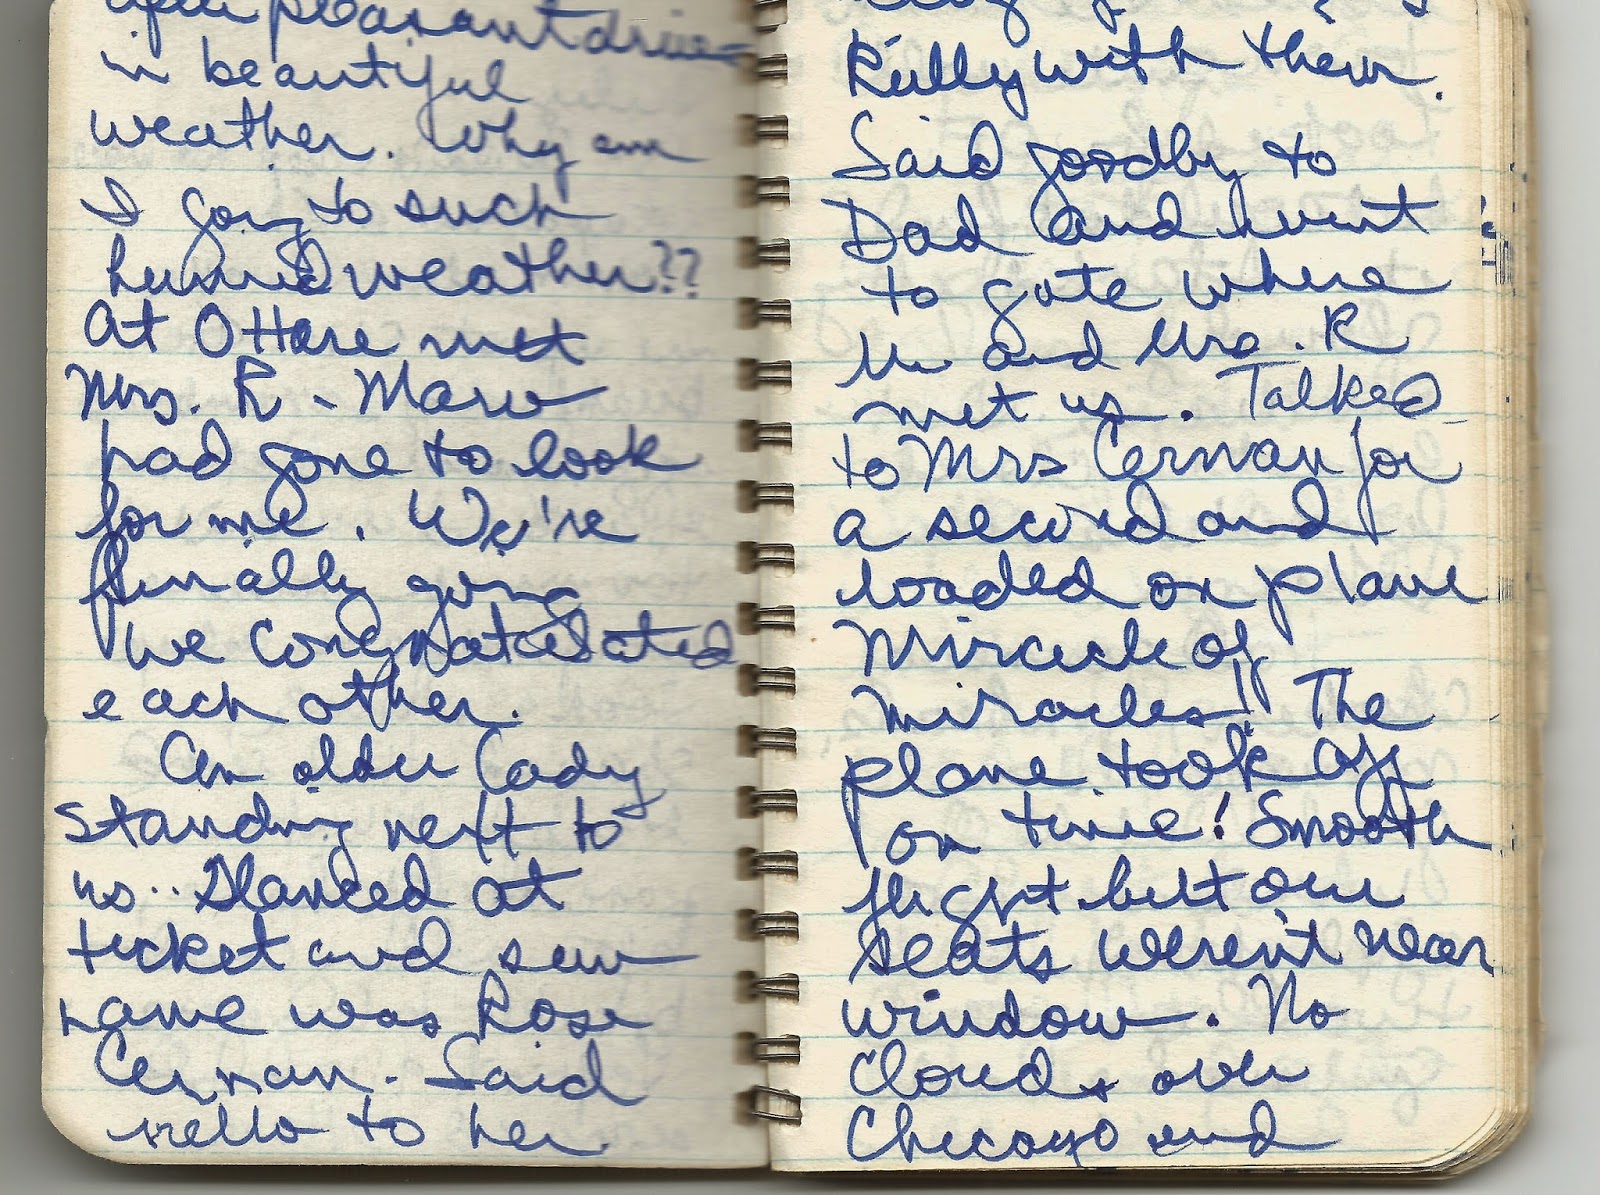 after pleasant drive
in beautiful
weather. Why am
I going to such
humid weather??
At O'Hare met
Mrs. R - Marv
had gone to look
for me. We're
finally going
We congratulated
each other.
An older lady
standing next to
us.. Glanced at
ticket and saw
name was Rose
Cernan. Said
hello to her.
with them.
Said goodby to
Dad and went
to gate where
Mr and Mrs. R
met us. Talked
to Mrs Cernan for
a second and
loaded on plane
Miracle of
miracles! The
plane took off
on time! Smooth
flight but our
seats weren't near
window. No
Clouds over
Chicago and